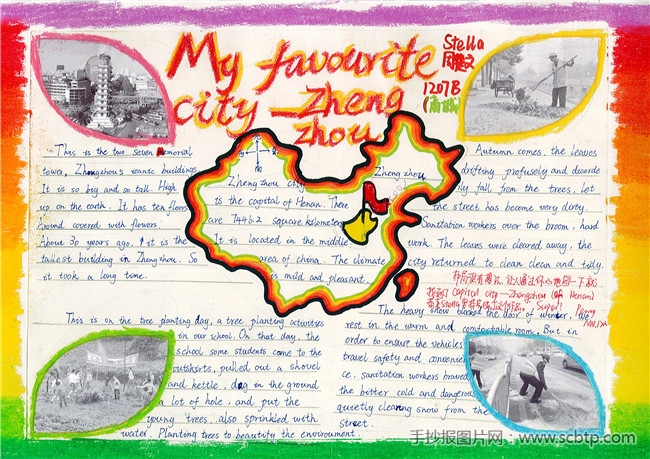 My favourite
city—Zheng
zhou
Stella
1207B
This is the two seven memorial
tower, Zhengzhou's scenic buildings
It is so big and so tall. High
up on the earth. It has ten floors
Around covered with flowers.
About 30 years ago, it is the
tallest building in Zhengzhou. So
it took a long time.
Zhengzhou city
is the capital of Henan. There
are 7446.2 square kilometers
It is located in the middle
area of china. The climate
is mild and pleasant.
Zheng zhou
Autumn comes, the leaves
drifting profusely and disorde
ly fall from the trees, let
the street has become very dirty.
Sanitation workers over the broom, hard
work. The leaves were cleared away, the
city returned to clean clean and tidy.
布局很有意思,让人通过你的地图一下就
找到了 Capital city—Zhengzhou (of Henan)
Super!
This is on the tree planting day, a tree planting activities
in our school. On that day, the
school some students come to the
outskirts, pulled out a shovel
and kettle, dig in the ground
a lot of hole, and put the
young trees, also sprinkled with
water. Planting trees to beautify the environment.
The heavy snow blocked the door of winter,
rest in the warm and comfortable room. But in
order to ensure the vehicles
travel safety and convenien
ce, sanitation workers braved
the bitter cold and dangerous
quietly clearing snow from the
street.
手抄报图片网:www.scbtp.com